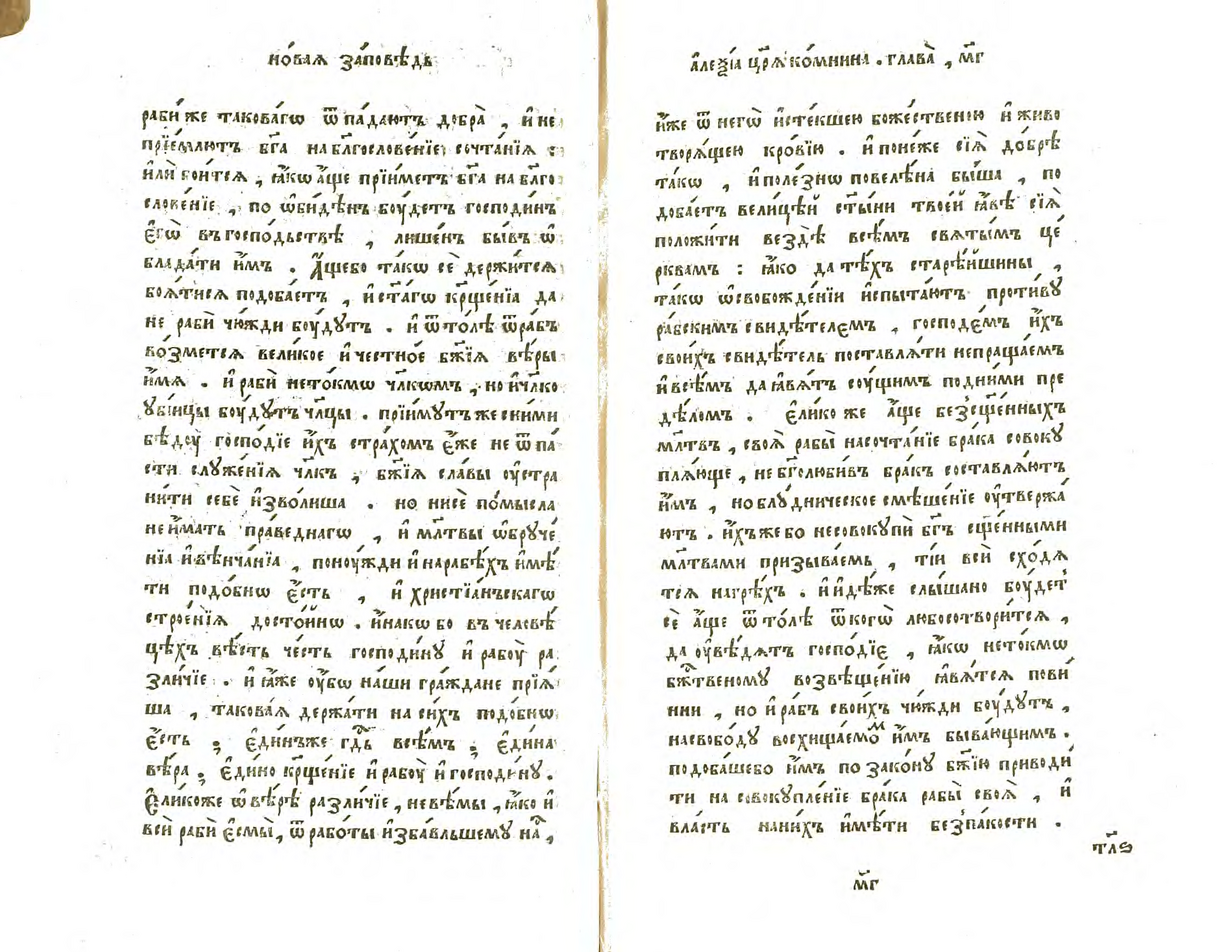 но́ваѧ за́повѣдь
раби́ же такова́гѡ ѿпа́даютъ добра̀ , и҆ не
прїе́млютъ бг҃а на блг҃ослове́нїе сочта́нїѧ :
и҆лѝ боѝтсѧ , ꙗ҆́кѡ а҆́ще прїи́метъ бг҃а на блг҃о
слове́нїе , по ѡ҆би́дѣнъ бꙋ́детъ господи́нъ
є҆гѡ̀ въ госпо́дьствѣ , лише́нъ бы́въ ѡ҆
блада́ти и҆̀мъ . А҆́щебо та́кѡ сѐ держи́тсѧ
боѧ́тисѧ подоба́етъ , и҆ ст҃а́гѡ крⷭ҇ще́нїа да
не рабѝ чю́жди бꙋ́дꙋтъ . и҆ ѿто́лѣ ѿра́бъ
во́зметсѧ вели́кое и҆ че́стно́е бж҃їѧ вѣ́ры
и҆́мѧ . и҆ рабѝ нето́кмѡ чл҃кѡмъ , но и҆ чл҃ко
ꙋбі́йцы бꙋ́дꙋтъ чл҃цы . прїи́мꙋтъ же сни́ми
бѣдꙋ̀ госпо́дїе и҆́хъ стра́хомъ є҆́же не ѿпа́
сти слꙋже́нїѧ чл҃къ , бж҃їѧ сла́вы ѹ҆стра
ни́ти себѐ и҆зво́лиша . но нисѐ по́мысла
не и҆́мать пра́веднагѡ , и҆ мл҃твы ѡ҆брꙋче́
нїа и҆ вѣнча́нїа , понꙋ́жди и҆ нарабѣ́хъ и҆мѣ́
ти подо́бнѡ є҆́сть , и҆ христїа́нъскагѡ
строе́нїѧ досто́йнѡ . и҆́накѡ бо въ человѣ́
цѣхъ вѣ́сть че́сть господи́нꙋ и҆ рабꙋ̀ ра
зли́чїе . и҆ ꙗ҆́же ѹ҆́бѡ на́ши гра́ждане прїѧ́
ша , такова́ѧ держа́ти на си́хъ подо́бнѡ
є҆́сть ; є҆ди́нъже гдⷭ҇ь всѣ́мъ ; є҆ди́на
вѣ́ра ; є҆ди́но крⷭ҇ще́нїе и҆ рабꙋ̀ и҆ господи́нꙋ .
Є҆ли́коже ѡ҆ вѣ́рѣ разли́чїе , не вѣ́мы , ꙗ҆́ко и҆
всѝ рабѝ є҆смы̀ , ѿ рабо́ты и҆зба́вльшемꙋ на́съ ,
а҆ле́ѯїа цр҃ѧ̀ комни́на . глава̀ , м҃г
и҆́же ѿ негѡ̀ и҆сте́кшею боже́ственою и҆ живо
творѧ́щею кро́вїю . и҆ поне́же сїѧ̀ до́брѣ
та́кѡ , и҆ поле́знѡ повелѣ́на бы́ша , по
доба́етъ вели́цѣй ст҃ы́ни твое́й ꙗ҆́вѣ сїѧ̀
положи́ти вездѣ̀ всѣ́мъ свѧты́мъ це́
рквамъ : ꙗ҆́ко да тѣ́хъ старѣ́йшины ,
та́кѡ ѡ҆свобожде́нїи и҆спыта́ютъ проти́вꙋ
ра́бскимъ свидѣ́телемъ , господе́мъ и҆́хъ
свои́хъ свидѣ́тель поставлѧ́ти непраща́емъ
и҆ всѣ́мъ да ꙗ҆вѧ́тъ сꙋ́щимъ подни́ми пре
дѣ́ломъ . є҆ли́ко же а҆́ще безсщ҃е́нныхъ
мл҃твъ , своѧ̀ рабы̀ насочта́нїе бра́ка совокꙋ
плѧ́юще , не бг҃олюби́въ бра́къ составлѧ́ютъ
и҆̀мъ , но блꙋдни́ческое смѣше́нїе ѹ҆твержа́
ютъ . и҆́хъже бо несовокꙋпѝ бг҃ъ сщ҃е́нными
мл҃твами призыва́емь , ті́и всѝ схо́дѧ
тсѧ на грѣ́хъ . и҆ и҆дѣ́же слы́шано бꙋ́детъ
сѐ а҆́ще ѿто́лѣ ѿ когѡ̀ любосотвори́тсѧ ,
да ѹ҆вѣ́дѧтъ госпо́дїе , ꙗ҆́кѡ нето́кмѡ
бжⷭ҇твеномꙋ возвѣще́нїю ꙗ҆вѧ́тсѧ пови́
нни , но и҆ ра́бъ свои́хъ чю́жди бꙋ́дꙋтъ ,
насвобо́дꙋ восхища́емомъ и҆̀мъ быва́ющимъ .
подоба́шебо и҆̀мъ по зако́нꙋ бж҃їю приводи́
ти на совокꙋпле́нїе бра́ка рабы̀ своѧ̀ , и҆
вла́сть нани́хъ и҆мѣ́ти безпа́кости .
тл҃ѕ
м҃г